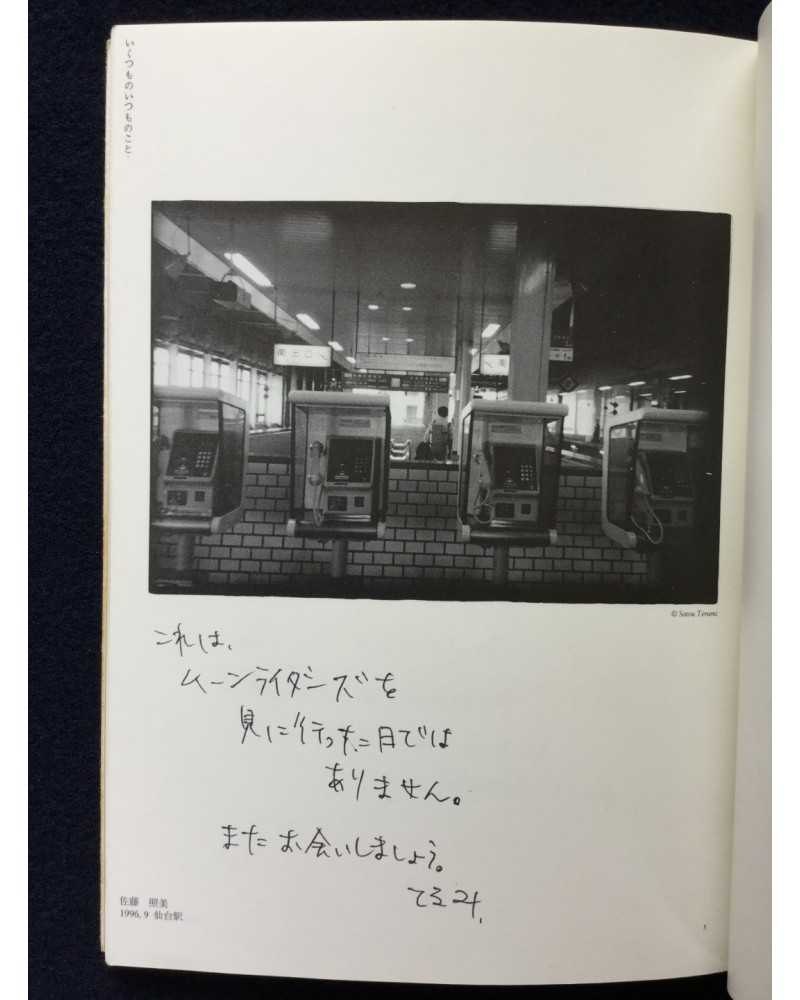 いくつものいつものこと
南出口
© Satou Terumi
これは、
ムーンライダーズを
見に行った日では
ありません。
また お会いしましょう。
てるみ.
佐藤 照美
1996. 9 仙台駅